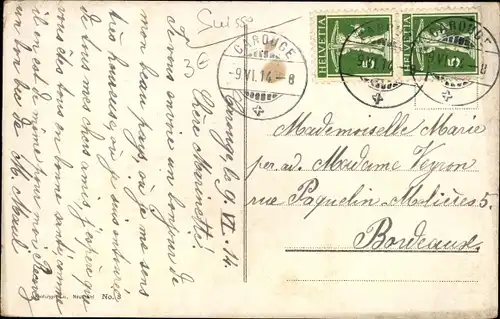 Suisse
3€
CAROUGE
-9.VI.14.-8
HELVETIA
5
HELVETIA
5
Carouge, le 9. VI. 14.
Chère Marinette!
Je vous envoie un bonjour de
mon beau pays, où je me sens
très heureuse, où je suis entourée
de tous mes chers amis, j'espère que
vous êtes tous en bonne santé, comme
il en est de même pour moi. Recevez
un bon baiser de M.
Mademoiselle Marie
per. ad. Madame Veyron
rue Paquelin Molières 5.
Bordeaux.
No.